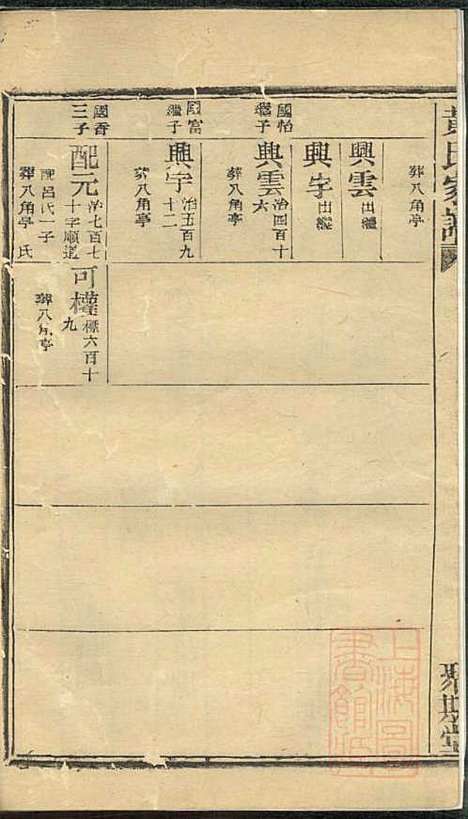 葬八角亭
興雲 出繼
興字 出繼
國怡
繼子
興雲 治四百十
六
葬八角亭
國富
繼子
興字 治五百九
十二
葬八角亭
國香
三子
配元 治七百七
十字順道
配呂氏一子
葬八角亭 氏
可權 標六百十
九
葬八角亭
氏家譜
堂
上海圖
書館藏